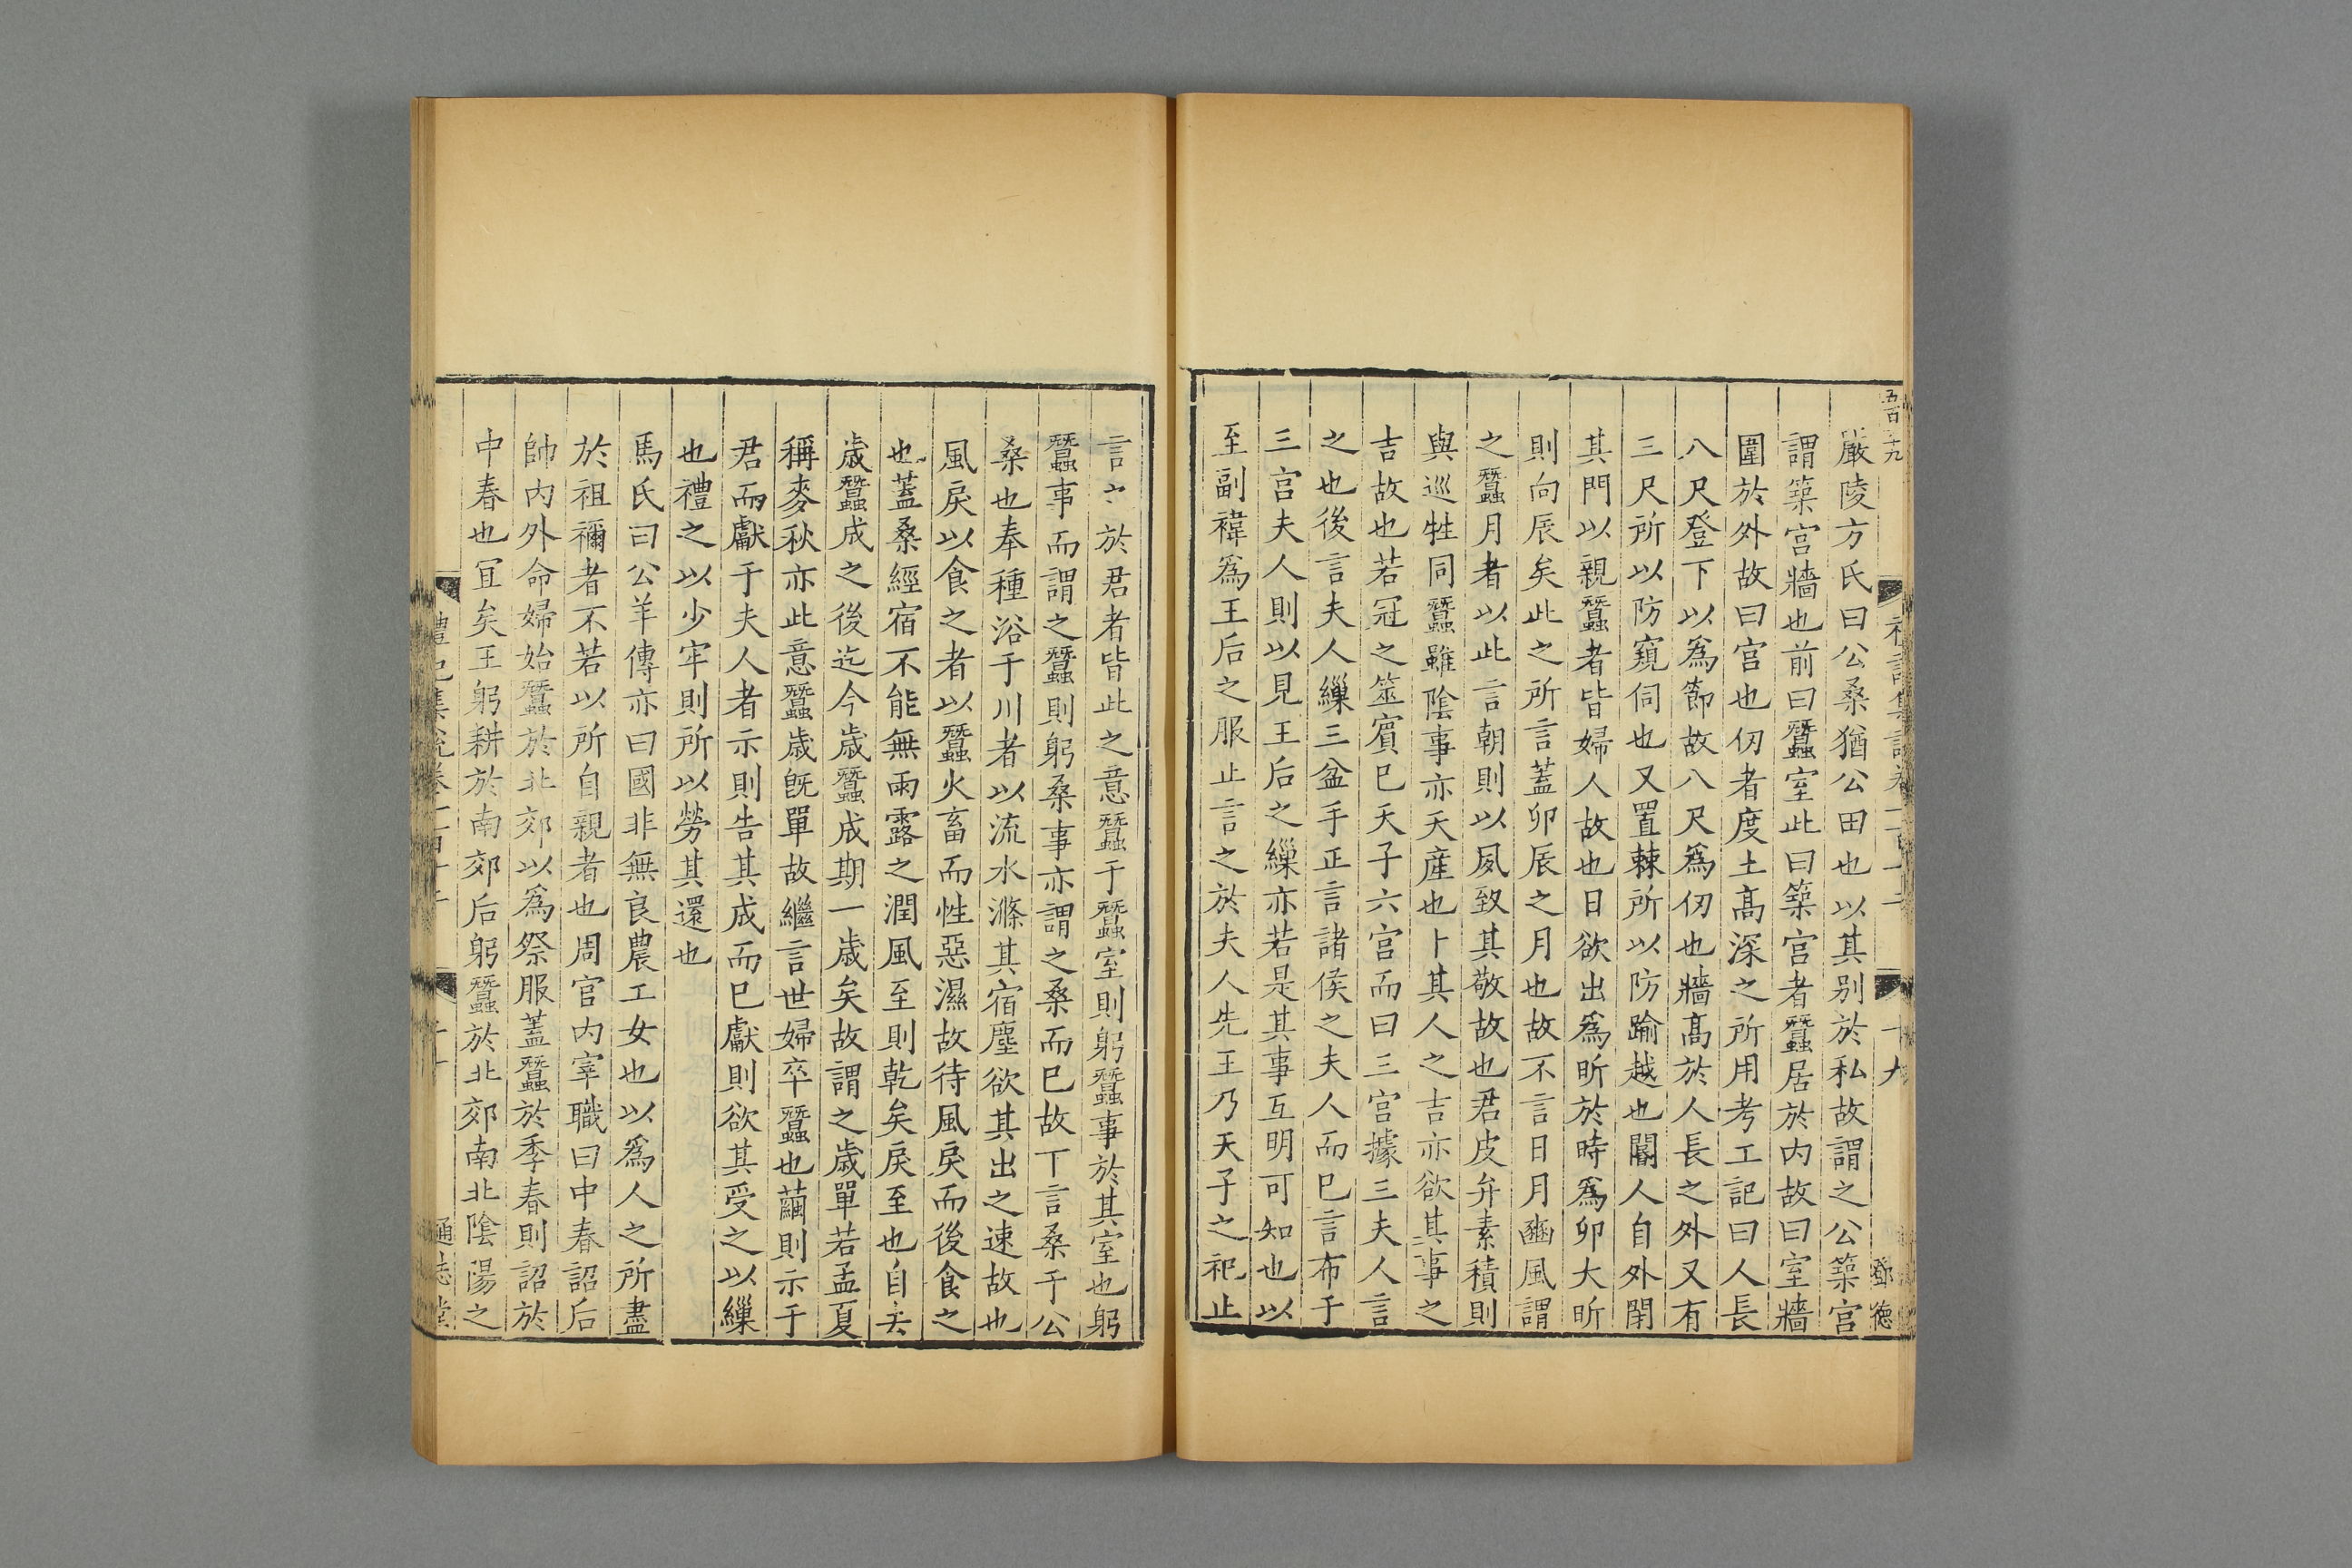 嚴陵方氏曰公桑猶公田也以其别於私故謂之公築宫
謂築宫牆也前曰蠶室此曰築宫者蠶居於内故曰室牆
圍於外故曰宫也仞者度土髙深之所用考工記曰人長
八尺登下以爲節故八尺爲仞也牆髙於人長之外又有
三尺所以防窺伺也又置棘所以防踰越也閽人自外閉
其門以親蠶者皆婦人故也日欲出爲昕於時爲卯大昕
則向辰矣此之所言蓋卯辰之月也故不言日月豳風謂
之蠶月者以此言朝則以夙致其敬故也君皮弁素積則
與巡牲同蠶雖陰事亦天産也卜其人之吉亦欲其事之
吉故也若冠之筮賓已天子六宫而曰三宫據三夫人言
之也後言夫人繅三盆手正言諸侯之夫人而已言布于
三宫夫人則以見王后之繅亦若是其事互明可知也以
至副褘爲王后之服止言之於夫人先王乃天子之祀止
言之於君者皆此之意蠶于蠶室則躬蠶事於其室也躬
蠶事而謂之蠶則躬桑事亦謂之桑而已故丅言桑于公
桑也奉種浴于川者以流水滌其宿塵欲其出之速故也
風戾以食之者以蠶火畜而性惡濕故待風戾而後食之
也蓋桑經宿不能無雨露之潤風至則乾矣戾至也自去
歳蠶成之後迄今歳蠶成期一歳矣故謂之歳單若孟夏
稱麥秋亦此意蠶歳旣單故繼言世婦卒蠶也繭則示于
君而獻于夫人者示則告其成而已獻則欲其受之以繅
也禮之以少牢則所以勞其還也
馬氏曰公羊傳亦曰國非無良農工女也以爲人之所盡
於祖禰者不若以所自親者也周官内宰職曰中春詔后
帥内外命婦始蠶於北郊以爲祭服蓋蠶於季春則詔於
中春也冝矣王躬耕於南郊后躬蠶於北郊南北陰陽之
十九
鄧德
通志堂